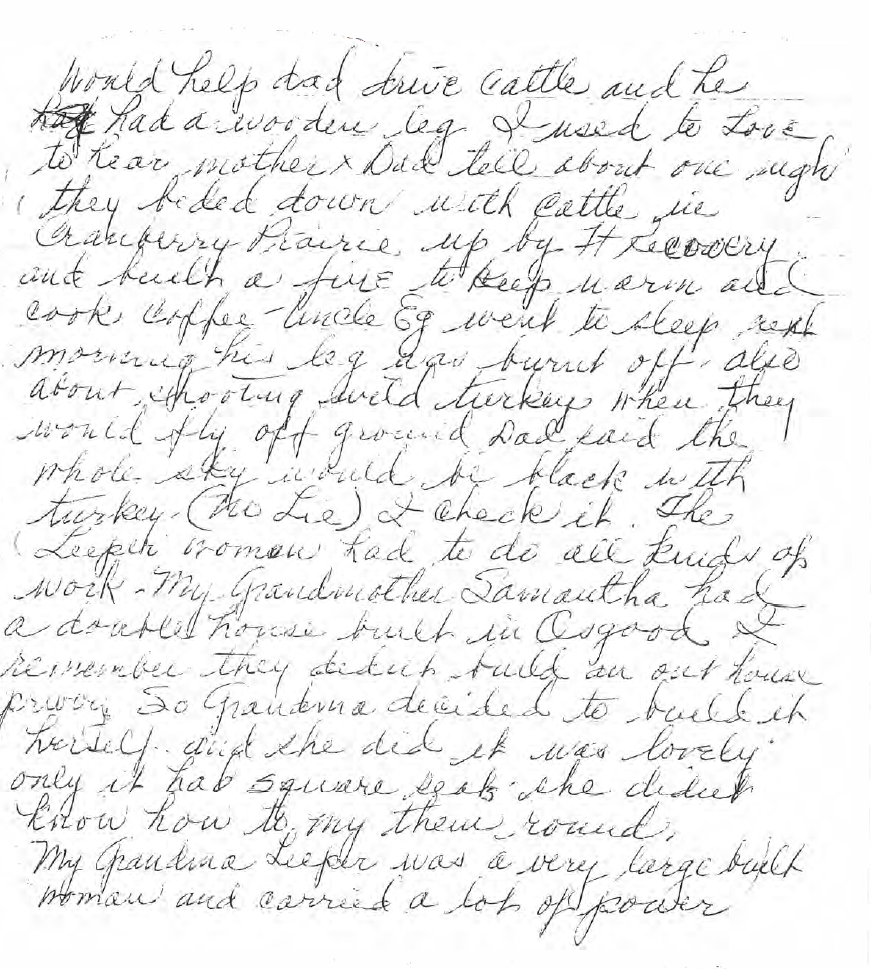 Would help dad drive cattle and he
had a wooden leg I used to Love
to hear mother x Dad tell about one nigh
they beded down with cattle in
Cranberry Prairie. up by Ft Recovery
and built a fire to keep warm and
cook coffee - Uncle Eg went to sleep next
morning his leg was burnt off. also
about shooting wild turkey when they
would fly off ground Dad said the
whole sky would be black with
turkey - (No Lie) I check it. The
Leeper woman had to do all kinds of
work - My Grandmother Samantha had
a double house built in Osgood I
remember they didnt build an out house
privoy So Grandma decided to build it
herself and she did it was lovely
only it had square seats she didnt
know how to my them round.
My Grandma Leeper was a very large built
woman and carried a lot of power